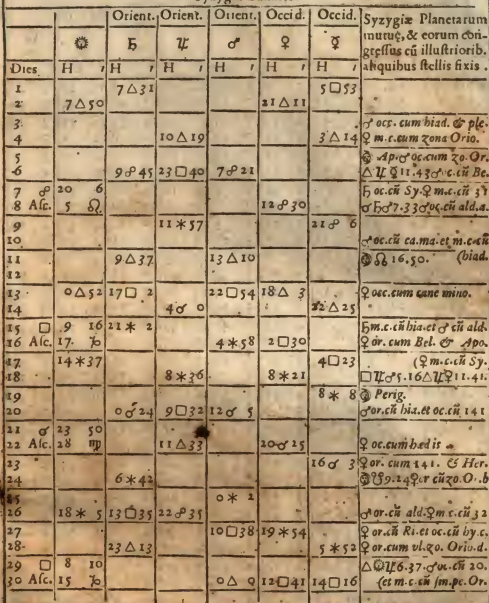 Orient. Orient. Orient. Occid. Occid. Syzygiæ Planetarum
☉ ♄ ♃ ♂ ♀ ☿ mutuę, & eorum cōn-
greſſus cū illuſtriorib.
Dies H ′ H ′ H ′ H ′ H ′ H ′ aliquibus ſtellis fixis.
1 7△31 5□53
2 7△50 21△11
3 ♂ occ. cum hiad. & ple.
4 10△19 3△14 ♀ m.c.cum zona Orio.
5 Ap.♂ oc.cum zo. Or.
6 9☍45 23□40 7☍21 △♃♀11.43♂oc.cū Be.
7 ☍ 20 6 ♄ oc.cū Sy.♀ m.c.cū 31
8 Aſc. 5 ♌ 12☍30 ♂♄♂7.33♂oc.cū ald.a.
9 11✶57 21☍ 6
10 ♂oc.cū ca.ma.et m.c.cū
11 9△37 13△10 ☊ 16.50. (hiad.
12
13 0△52 17□ 2 22□54 18△ 3 ♀ occ.cum cane mino.
14 4☌ 0 22△25
15 □ 9 16 21✶ 2 ♄m.c.cū hia.et ♂ cū ald.
16 Aſc. 17 ♑ 4✶58 2□30 ♀ or. cum Bel. & Apo.
17 14✶37 4□23 (♀ m.c.cū Sy.
18 8✶36 8✶21 □♃♂5.16△♃♀11.41.
19 8✶ 8 Perig.
20 0☌24 9□32 12☌ 5 ♂or.cū hia.et oc.cū 141
21 ☌ 23 50
22 Aſc. 28 ♍ 11△33 20☌25 ♀ oc.cum hædis
23 16☌ 3 ♀or. cum 141. & Her.
24 6✶42
25 0✶ 2
26 18✶ 5 13□35 22☍35 ♂or.cū ald.♀m c.cū 32
27 10□38 19✶54 ♀ or.cū Ri.et oc.cū hy.c.
28 23△13 5✶52 ♀ or.cum vl.zo. Orio.d.
29 □ 8 10 △♃6.37.♂oc.cū 20.
30 Aſc. 15 ♑ 0△ 0 12□41 14□16 (et m.c.cū ſm.pe.Or.